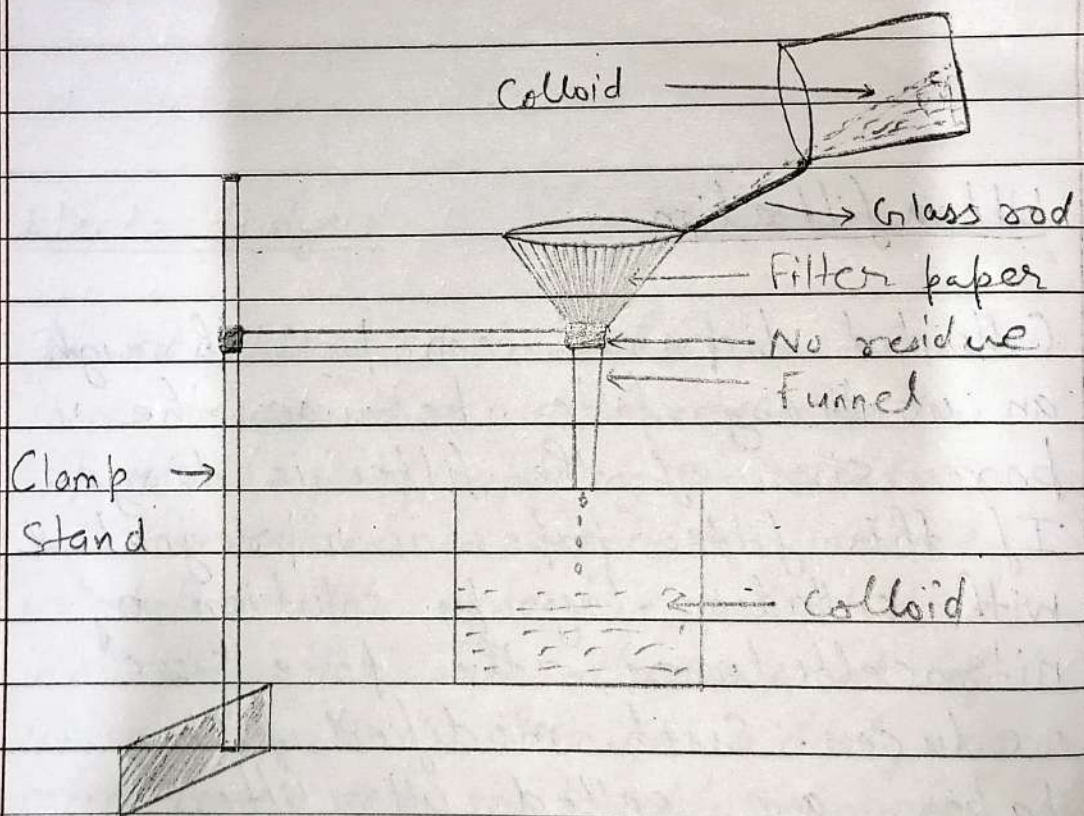 Colloid
Glass rod
Filter paper
No residue
Funnel
Clamp
Stand
Colloid